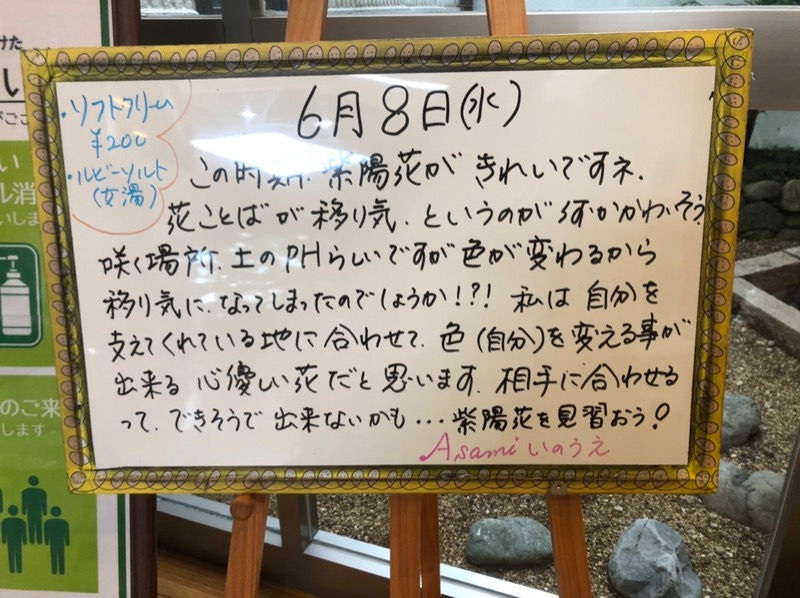 けた
い
がござ
い
ル消
いしま
のご来
します
・ソフトクリーム
¥200
・ルビーソルト
(女湯)
6月8日(水)
この時期、紫陽花が きれいですネ.
花ことばが移り気、というのが 何かかわいそう
咲く場所、土のPHらしいですが色が変わるから
移り気に、なってしまったのでしょうか!?! 私は 自分を
支えてくれている地に合わせて、色(自分)を変える事が
出来る 心優しい花だと思います. 相手に合わせる
って、できそうで出来ないかも…紫陽花を見習おう!
Asami いのうえ